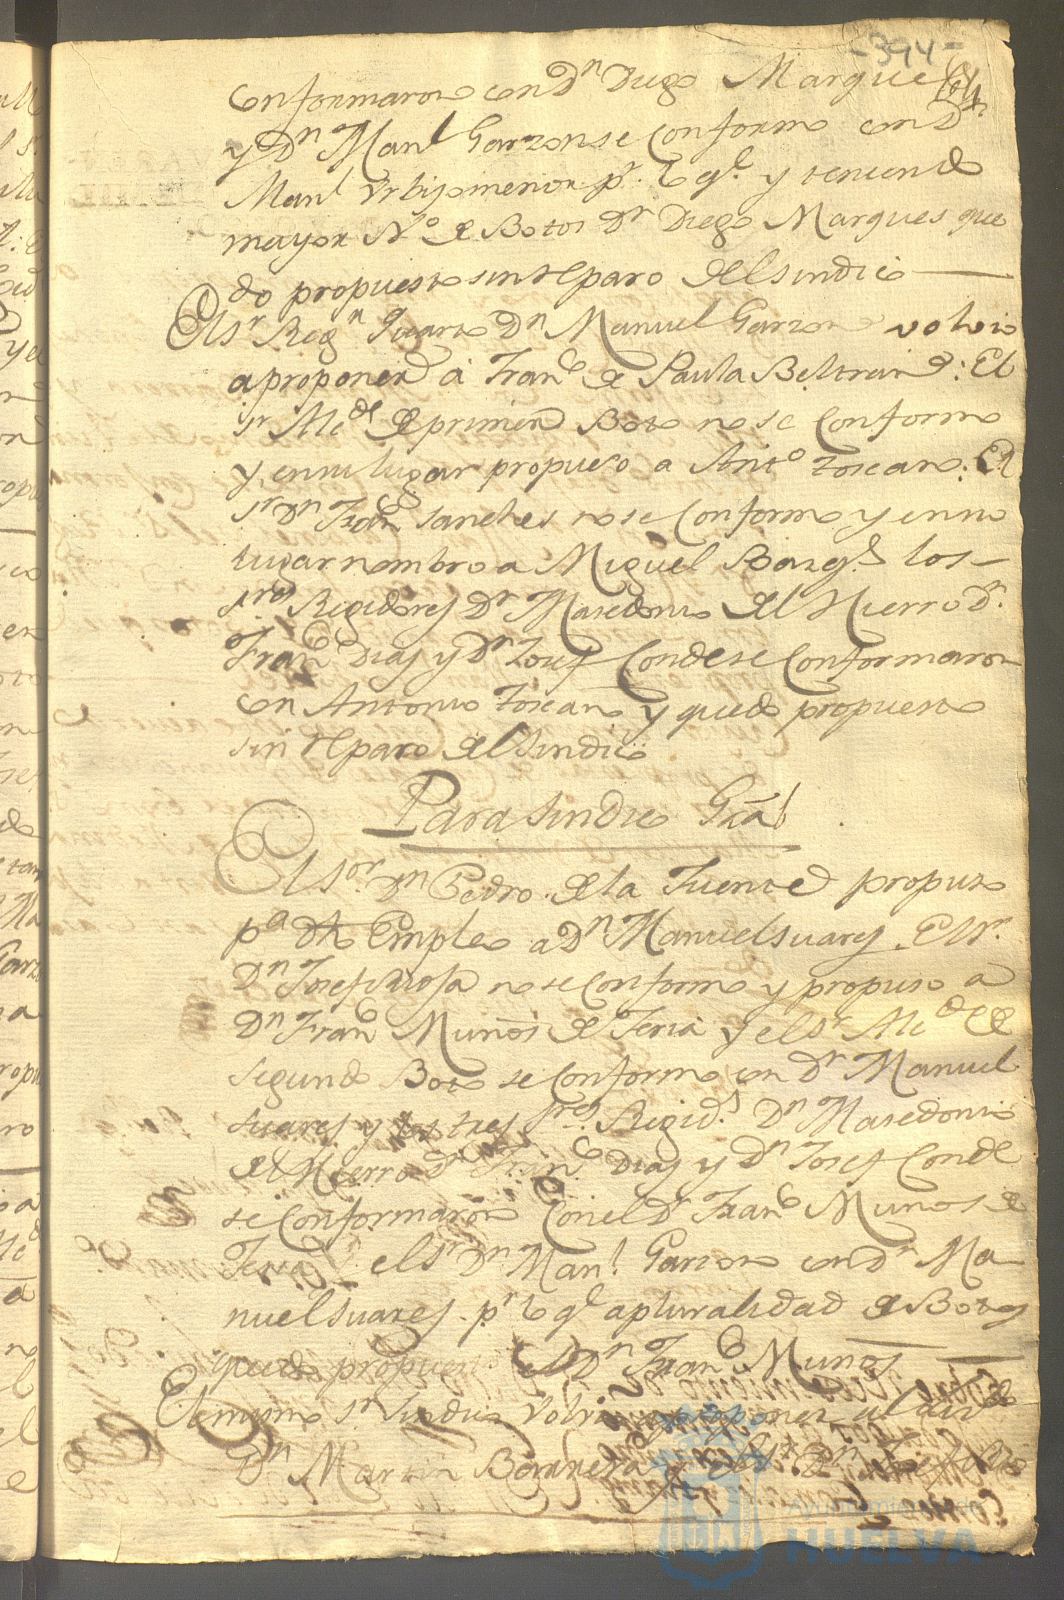 -394-
Conformaron con Dn Diego Marques
y Dn Manl Garzon se Conformo con Dn
Manl Urbis menor pr lo ql y teniendo
mayor No de Botos Dn Diego Marques que
do propuesto sin reparo del sindico
El sr Regn quarto Dn Manuel Garzon volvio
a proponer á Franco de Paula Beltran : El
sr Alcde de primer Boto no se Conformo
y en su lugar propuso a Anto toscano. El
sr Dn Franco sanches no se Conformo y en su
lugar nombro a Miguel los
sres Regidores Dn Masedonio del Hierro Dn
Franco Dias y Dn Josef Conde se Conformaron
con Antonio toscano y quedo propuesto
sin reparo del sindico
Para sindico Gral
El sor Dn Pedro de la Fuente propuso
pa dho Empleo a Dn Manuel suares. El sr
Dn Josef Rioja no se Conformo y propuso a
Dn Franco Muños de Feria y el sr Alcde de
segundo Boto se Conformo con Dn Manuel
suares y los tres sres Regids Dn Masedonio
del Hierro Dn Franco Dias y Dn Josef Conde
se Conformaron Con el Dn Franco Muños de
Feria y el sr Dn Manl Garzon con Dn Ma
nuel suares. pr lo ql a pluralidad de Botos
quedo propuesto el Dn Franco Muños
El mismo sr sindico Volvio a proponer al
Dn Martin Y el sr Dn Josef
Ayuntamiento de
HUELVA